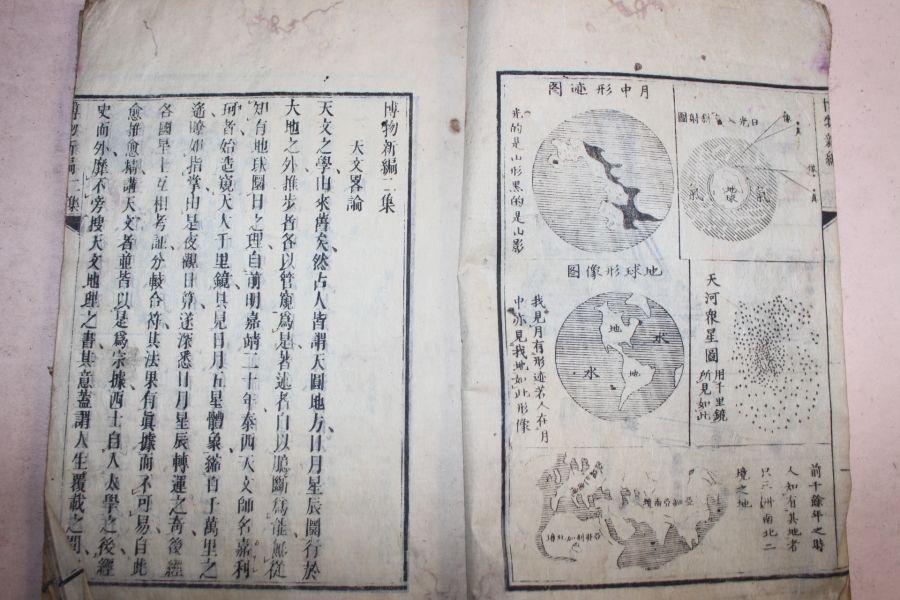 月中形迹圖
光的是山形黑的是山影
日光入氣斜射圖
氣
地球
氣
地球形像圖
我見月有形迹若人在月
中亦見我地如此形像
地
水
水
地
天河衆星圖
用千里鏡
所見如此
前千餘年之時
人知有其地者
只三洲南北二
境之地
博物新編二集
天文畧論
天文之學由來舊矣然古人皆謂天圓地方日月星辰圜行於
大地之外推步者各以管窺為是著述者自以臆斷為能無從
知有地球圜日之理自前明嘉靖二十年泰西天文師名嘉利
珂者始造窺天大千里鏡具見日月五星體象縮百千萬里之
遙瞭如指掌由是夜觀日算遂深悉日月星辰轉運之奇後經
各國早士互相考証分較合符其法果有眞據而不可易自此
愈推愈精講天文者並皆以是為宗據西士自入大學之後經
史而外靡不旁搜天文地理之書其意蓋謂人生覆載之間
博物新編二集